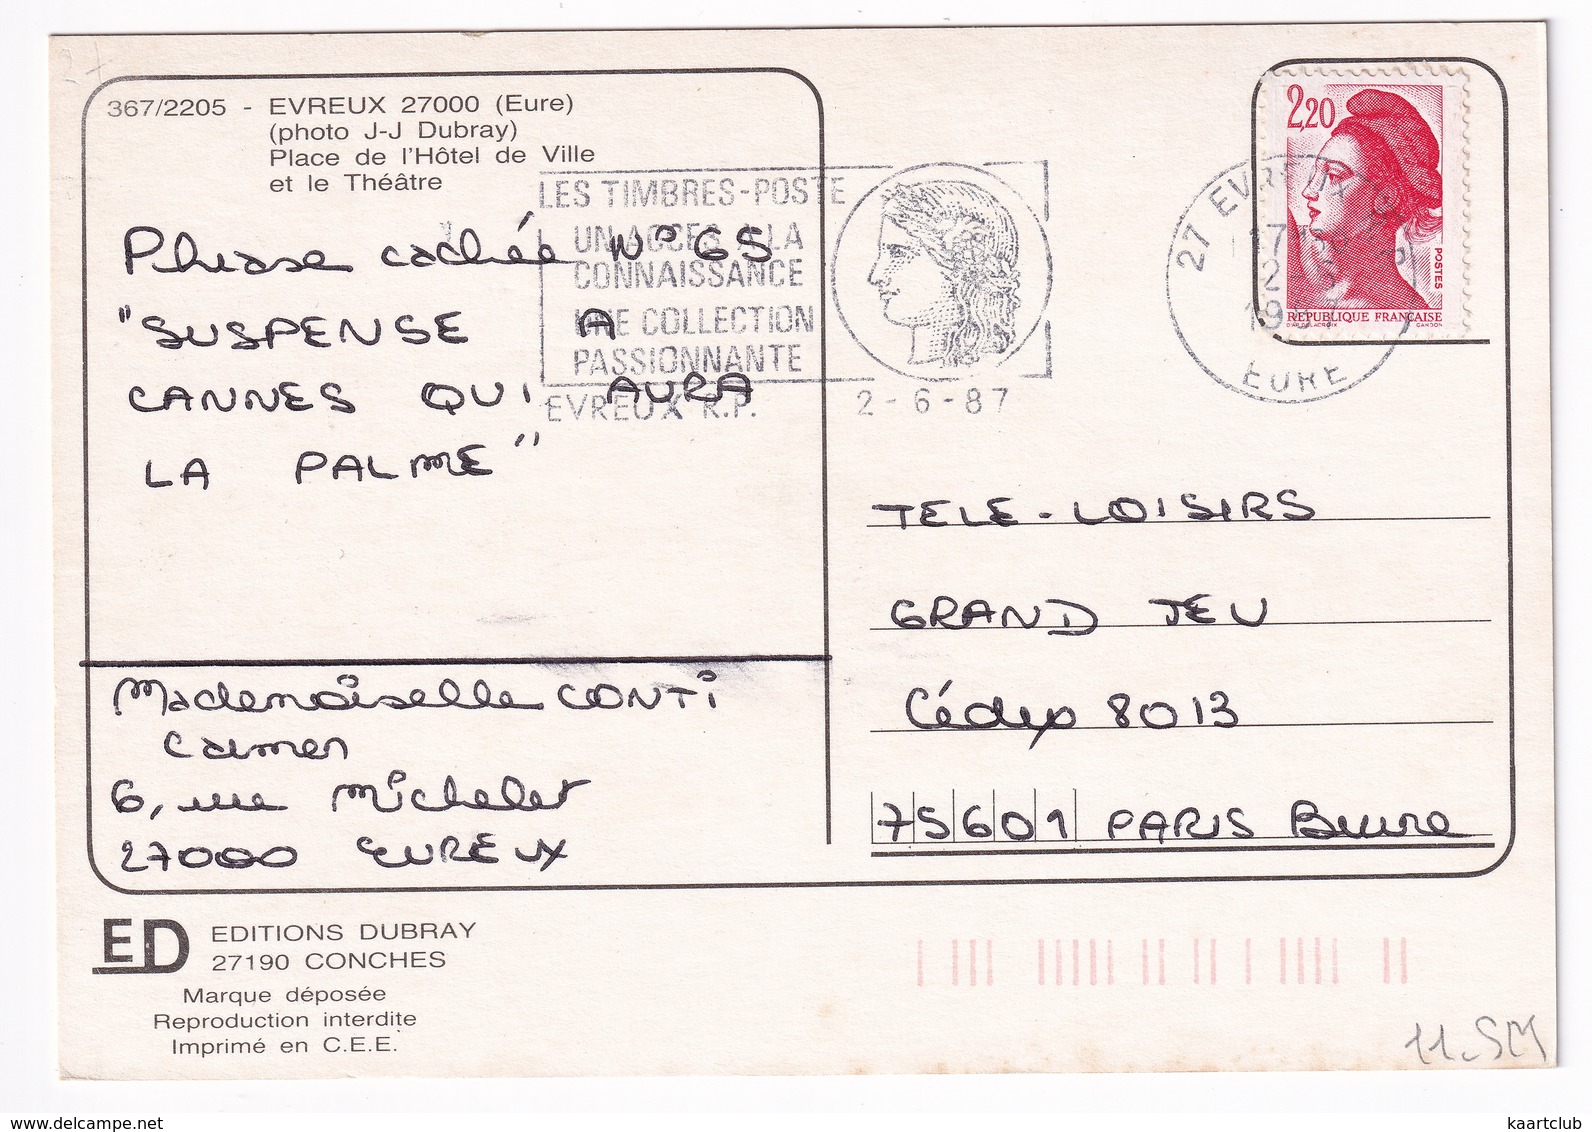 367/2205 - EVREUX 27000 (Eure)
(photo J-J Dubray)
Place de l'Hôtel de Ville
et le Théâtre
LES TIMBRES-POSTE
UN ACCES A LA
CONNAISSANCE
UNE COLLECTION
PASSIONNANTE
EVREUX R.P.
2-6-87
27 EVREUX
17H
2
19
EURE
2,20
POSTES
RÉPUBLIQUE FRANÇAISE
D'AP. DELACROIX GANDON
Phrase cachée N° 65
"SUSPENSE A
CANNES QUI AURA
LA PALME"
Mademoiselle CONTI
Carmen
6, rue Michelet
27000 EVREUX
TELE-LOISIRS
GRAND JEU
Cédex 8013
75601 PARIS Brune
ED
EDITIONS DUBRAY
27190 CONCHES
Marque déposée
Reproduction interdite
Imprimé en C.E.E.
11.SM
kaartclub